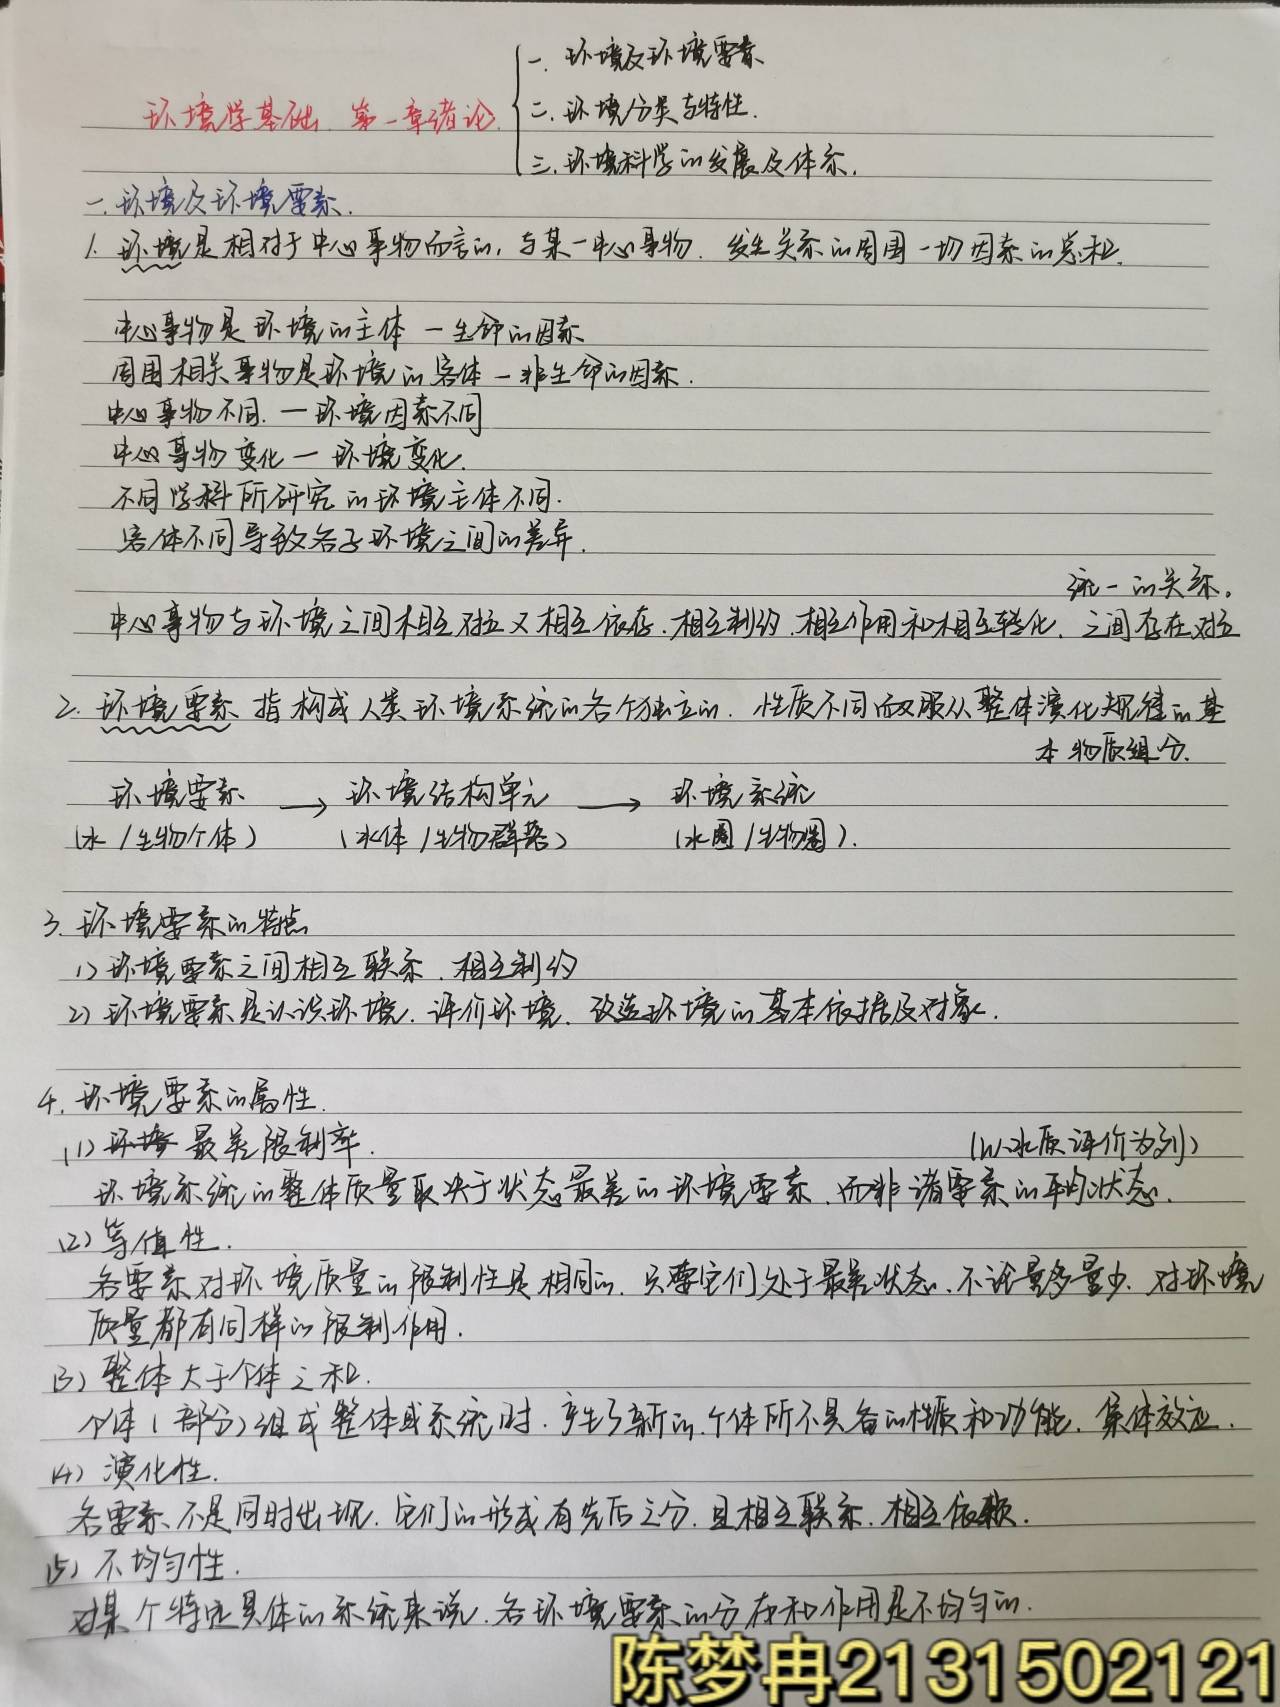 环境学基础 第一章绪论
一. 环境及环境要素
二. 环境分类与特性.
三. 环境科学的发展及体系.
一. 环境及环境要素.
1. 环境是相对于中心事物而言的, 与某一中心事物. 发生关系的周围一切因素的总和.
中心事物是环境的主体 — 生命的因素
周围相关事物是环境的客体 — 非生命的因素.
中心事物不同. — 环境因素不同
中心事物变化 — 环境变化.
不同学科所研究的环境主体不同.
客体不同导致各子环境之间的差异.
中心事物与环境之间相互对立又相互依存.相互制约.相互作用和相互转化. 之间存在对立
统一的关系.
2. 环境要素 指构成人类环境系统的各个独立的. 性质不同而又服从整体演化规律的基
本物质组分.
环境要素 → 环境结构单元 → 环境系统
(水/生物个体) (水体/生物群落) (水圈/生物圈).
3. 环境要素的特点
1) 环境要素之间相互联系. 相互制约
2) 环境要素是认识环境. 评价环境. 改造环境的基本依据及对象.
4. 环境要素的属性.
(1) 环境 最差限制率. (以水质评价为列)
环境系统的整体质量取决于状态最差的环境要素.而非诸要素的平均状态.
(2) 等值性.
各要素对环境质量的限制性是相同的. 只要它们处于最差状态.不论量多量少. 对环境
质量都有同样的限制作用.
(3) 整体大于个体之和.
个体(部分)组成整体或系统时. 产生了新的.个体所不具备的性质和功能. 集体效应.
(4) 演化性.
各要素不是同时出现. 它们的形成有先后之分.且相互联系.相互依赖.
(5) 不均匀性.
对某个特定具体的系统来说.各环境要素的分布和作用是不均匀的.
陈梦冉2131502121